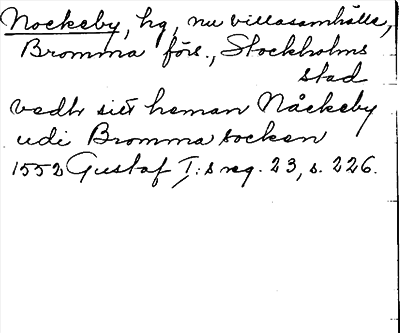 Nockeby, hg, nu villasamhälle,
Bromma förs., Stockholms
stad
vedh siit heman Nåckeby
udi Bromma socken
1552 Gustaf I:s reg. 23, s. 226.